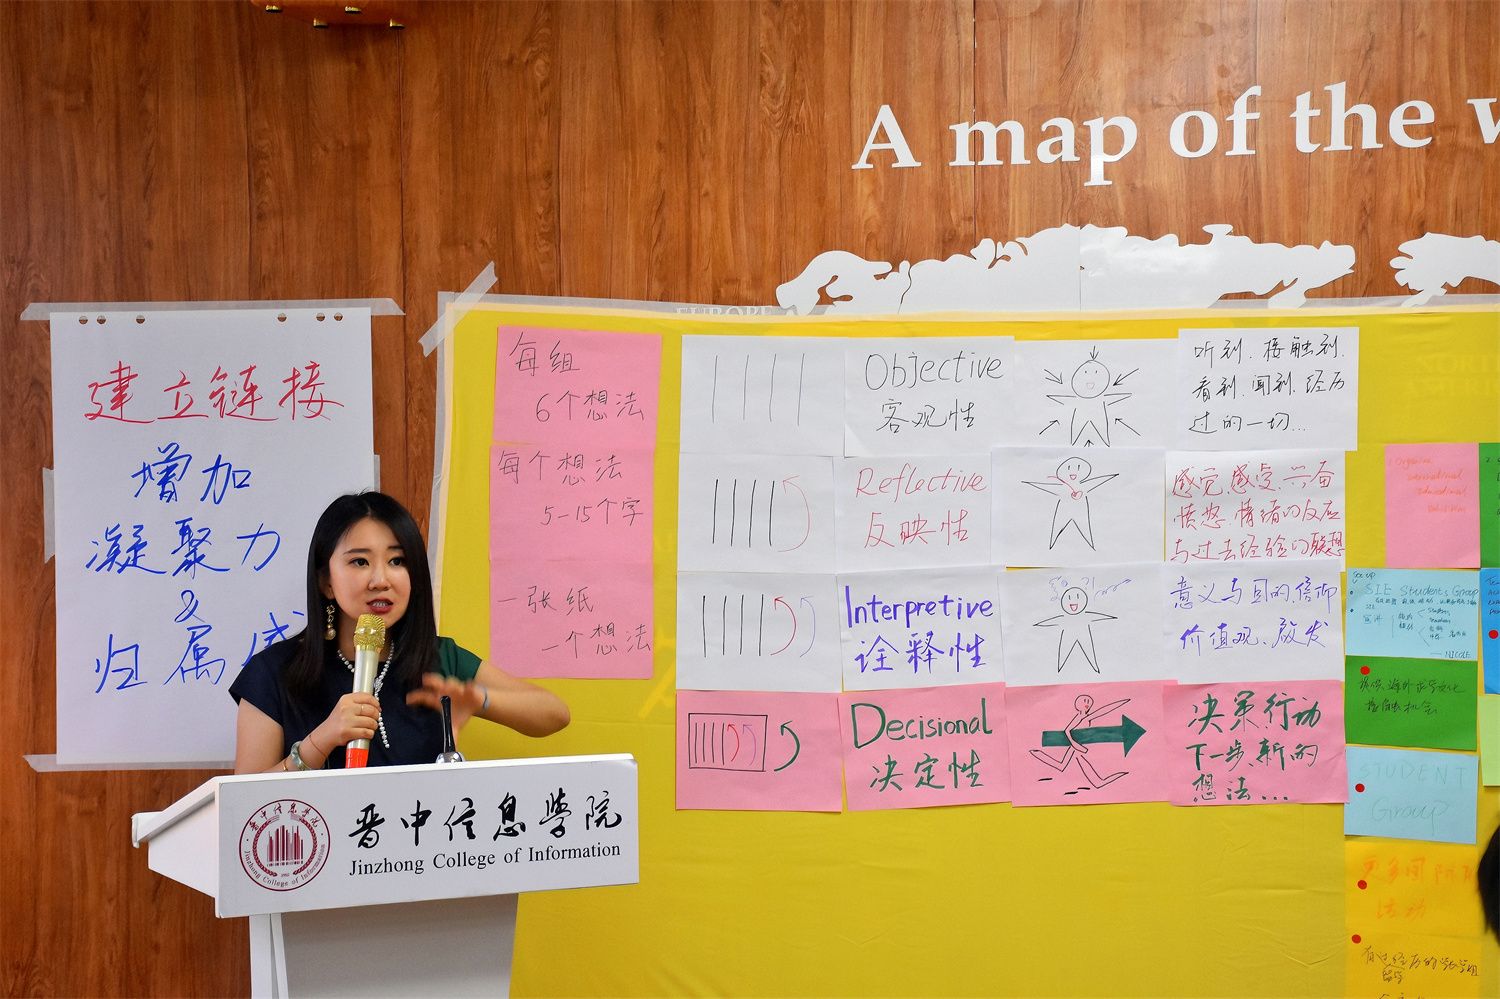 A map of the
EUROPE
建立链接
增加
凝聚力
&
归属感
每组
6个想法
每个想法
5-15个字
一张纸
一个想法
Objective
客观性
听到、接触到、
看到、闻到、经历
过的一切...
Reflective
反映性
感觉、感受、兴奋
愤怒、情绪的反应
与过去经验的联想
Interpretive
诠释性
意义与目的、信仰
价值观、启发
Decisional
决定性
决策行动
下一步、新的
想法...
1. Organize
international
educational
SIE Students Group
宣讲
NICOLE
STUDENT
Group
更多国际
活动
晋中信息学院
Jinzhong College of Information
晋中信息学院
Jinzhong College of Information